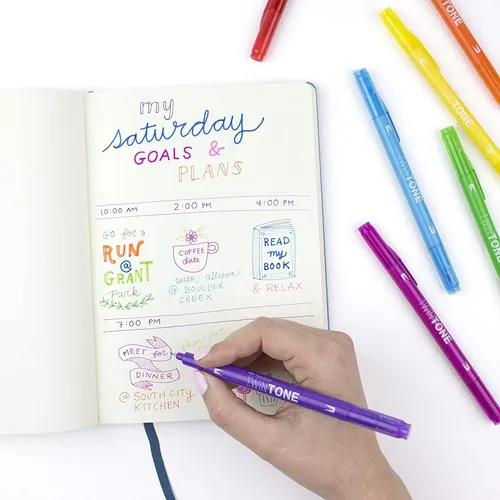 my
saturday
GOALS &
PLANS
10:00 AM 2:00 PM 4:00 PM
GO for a
RUN
@
GRANT
Park
COFFEE
date
with allison
@ BOULDER
CREEK
READ
my
BOOK
& RELAX
7:00 PM
MEET for
DINNER
@ SOUTH CITY
KITCHEN
then get
TWINTONE
TWINTONE
TWINTONE
TWINTONE
TWINTONE
TWINTONE